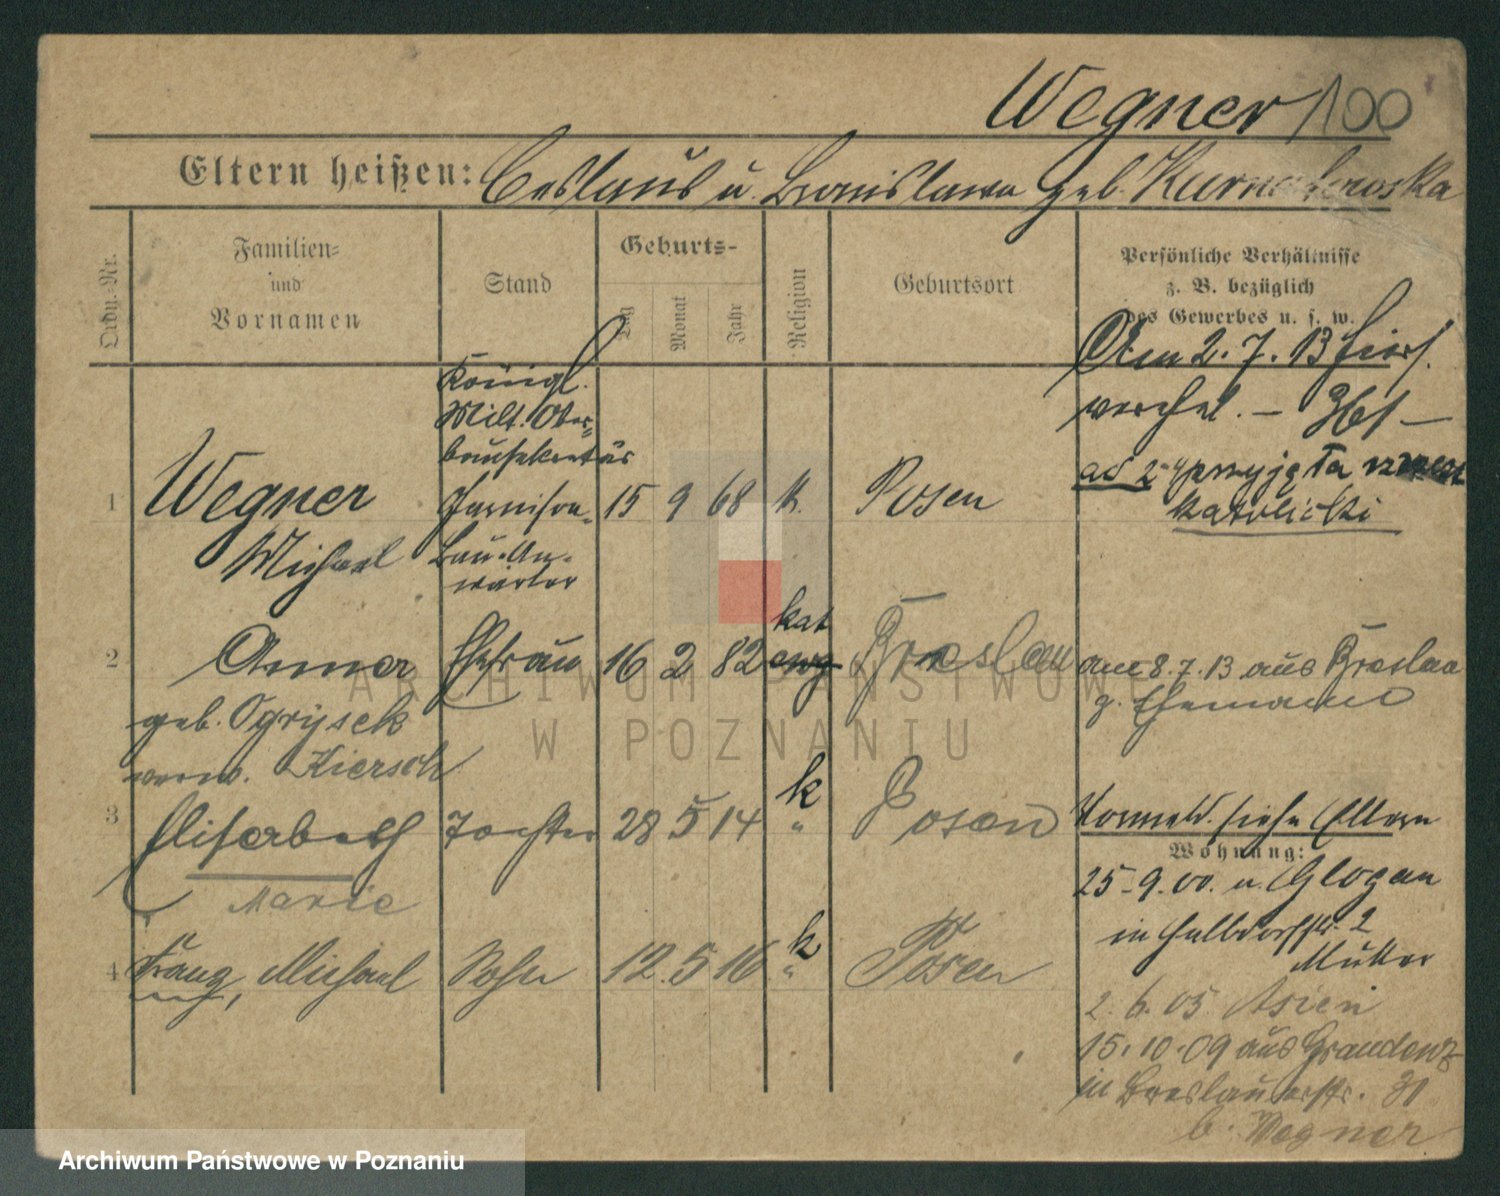 Wegner 100
Eltern heißen: Ceslaus u. Bronislawa geb. Kurnatowska
Ordn.-Nr.
Familien-
und
Vornamen
Stand
Geburts-
Tag
Monat
Jahr
Religion
Geburtsort
Persönliche Verhältnisse
z. B. bezüglich
des Gewerbes u. s. w.
Am 2.7.13 hier
verehel. –
ad 2 przyjęła
katolicki
Königl.
Milt. Ober-
bausekretär
Garnison-
Bau-An-
wärter
1 Wegner
Michael
15 9 68 k. Posen
2 Anna Ehefrau 16 2 82 kat evg Breslau
geb. Ogrysek
verw. Kiersch
am 8.7.13 aus Breslau
z. Ehemann
3 Elisabeth Tochter 28 5 14 k " Posen
Marie
Vormeld. siehe Eltern
Wohnung:
25-9.00. u. Glogau
in Halbdorfstr. 2
Mutter
4 Franz, Michael Sohn 12.5 16 k " Posen
2.6.05 Asien
15.10.09 aus Graudenz
in Breslauerstr. 31
b. Wegner
ARCHIWUM PAŃSTWOWE
W POZNANIU
Archiwum Państwowe w Poznaniu